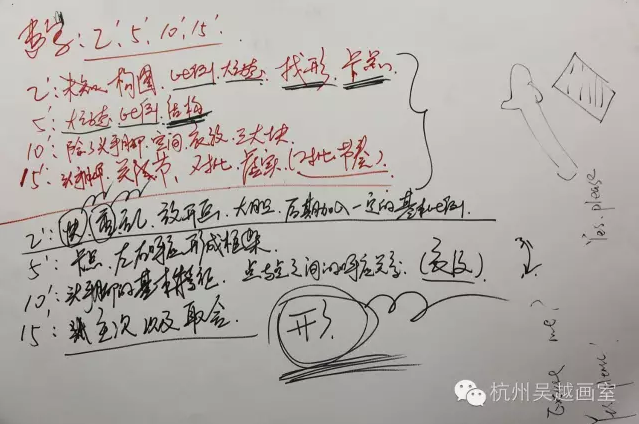 教学: 2'. 5'. 10'. 15'.
2': 未知. 构图. 比例. 大动态. 找形. 卡点.
5': 大动态. 比例. 结构
10': 除了头手脚. 空间收放. 三大块
15': 头手脚 关注节. 对比. 虚实. (对比. 节奏)
2': 快 乱. 放开画. 大胆. 后期加入一定的基本比例.
5': 卡点. 左右呼应形成框架
10': 头手脚的基本特征. 点与点之间的呼应关系. (收放)
15': 主次以及取舍.
开形
Yes. please
Excuse me,
Yes. please!
杭州吴越画室